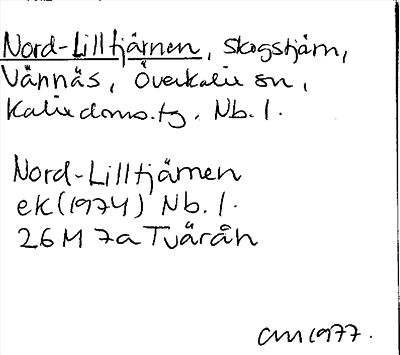 Nord-Lilltjärnen, skogstjärn,
Vännäs, Överkalix sn,
Kalix doms.tg. Nb. l.
Nord-Lilltjärnen
ek (1974) Nb. l.
26 M 7a Tvärån
1977.